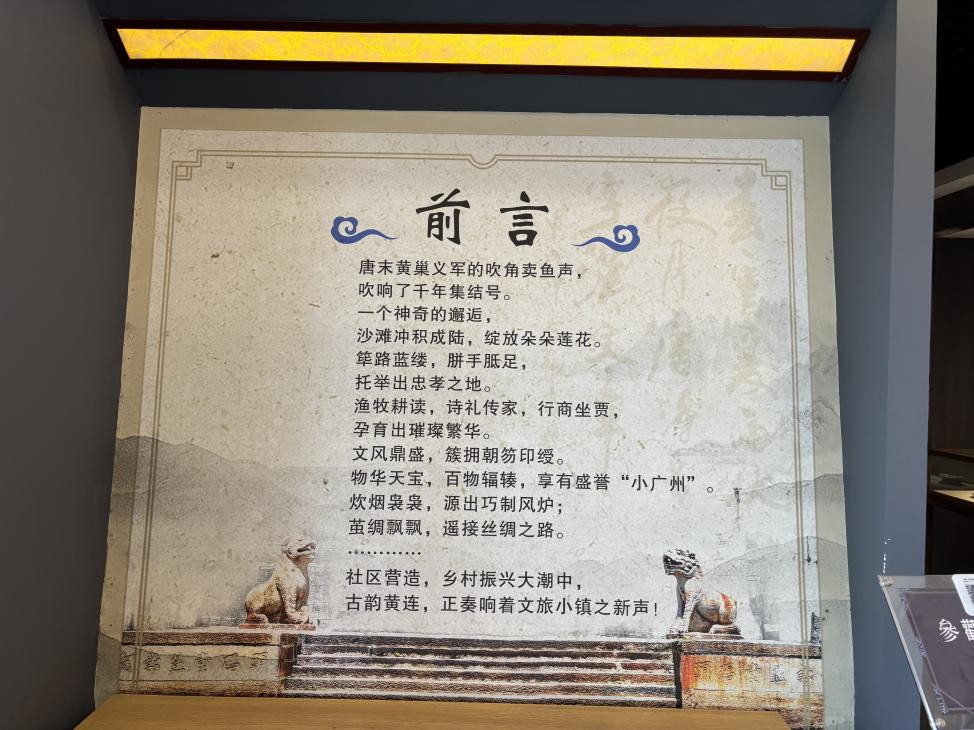 前言
唐末黄巢义军的吹角卖鱼声，
吹响了千年集结号。
一个神奇的邂逅，
沙滩冲积成陆，绽放朵朵莲花。
筚路蓝缕，胼手胝足，
托举出忠孝之地。
渔牧耕读，诗礼传家，行商坐贾，
孕育出璀璨繁华。
文风鼎盛，簇拥朝笏印绶。
物华天宝，百物辐辏，享有盛誉“小广州”。
炊烟袅袅，源出巧制风炉；
茧绸飘飘，遥接丝绸之路。
…………
社区营造，乡村振兴大潮中，
古韵黄连，正奏响着文旅小镇之新声！
參觀